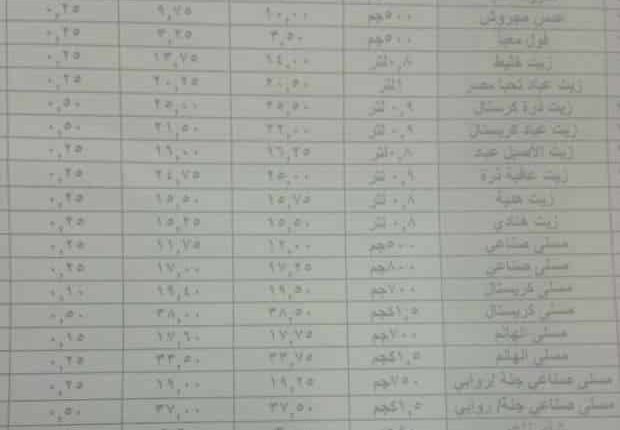 عدس مجروش ٥٠٠جم ١٠,٠٠ ٩,٧٥ ٠,٢٥
فول معبأ ٥٠٠جم ٣,٥٠ ٣,٢٥ ٠,٢٥
زيت خليط ٠,٨لتر ١٤,٠٠ ١٣,٧٥ ٠,٢٥
زيت عباد تحيا مصر ١لتر ٢٠,٥٠ ٢٠,٢٥ ٠,٢٥
زيت ذرة كرستال ٠,٩ لتر ٢٥,٥٠ ٢٥,٠٠ ٠,٥٠
زيت عباد كريستال ٠,٩ لتر ٢٢,٠٠ ٢١,٥٠ ٠,٥٠
زيت الأصيل عباد ٠,٨لتر ١٦,٢٥ ١٦,٠٠ ٠,٢٥
زيت عافية ذرة ٠,٩ لتر ٢٥,٠٠ ٢٤,٧٥ ٠,٢٥
زيت هدية ٠,٨ لتر ١٥,٧٥ ١٥,٥٠ ٠,٢٥
زيت هنادي ٠,٨ لتر ١٥,٥٠ ١٥,٢٥ ٠,٢٥
مسلى صناعي ٥٠٠جم ١٢,٠٠ ١١,٧٥ ٠,٢٥
مسلى صناعي ٨٠٠جم ١٧,٢٥ ١٧,٠٠ ٠,٢٥
مسلى كريستال ٧٠٠جم ١٩,٥٠ ١٩,٤٠ ٠,١٠
مسلى كريستال ١,٥كجم ٣٨,٥٠ ٣٨,٠٠ ٠,٥٠
مسلى الهانم ٧٠٠جم ١٧,٧٥ ١٧,٦٠ ٠,١٥
مسلى الهانم ١,٥كجم ٣٣,٧٥ ٣٣,٥٠ ٠,٢٥
مسلى صناعي جنة /روابي ٧٥٠جم ١٩,٢٥ ١٩,٠٠ ٠,٢٥
مسلى صناعي جنة/ روابي ١,٥كجم ٣٧,٥٠ ٣٧,٠٠ ٠,٥٠